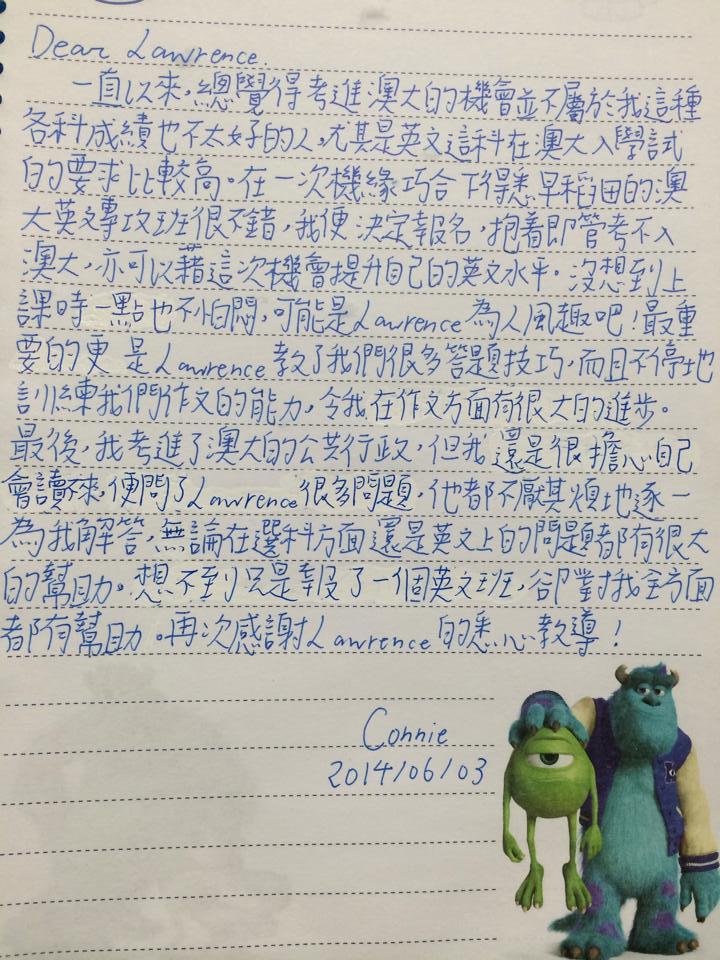 Dear Lawrence.
一直以來,總覺得考進澳大的機會並不屬於我這種
各科成績也不太好的人,尤其是英文這科在澳大入學試
的要求比較高。在一次機緣巧合下得悉早稻田的澳
大英文專攻班很不錯,我便決定報名,抱着即管考不入
澳大,亦可以藉這次機會提升自己的英文水平。沒想到上
課時一點也不怕悶,可能是Lawrence為人風趣吧!最重
要的更是Lawrence教了我們很多答題技巧,而且不停地
訓練我們作文的能力,令我在作文方面有很大的進步。
最後,我考進了澳大的公共行政,但我還是很擔心自己
會讀不來,便問了Lawrence很多問題,他都不厭其煩地逐一
為我解答,無論在選科方面還是英文上的問題都有很大
的幫助。想不到只是報了一個英文班,卻對我全方面
都有幫助。再次感謝Lawrence的悉心教導!
Connie
2014/06/03